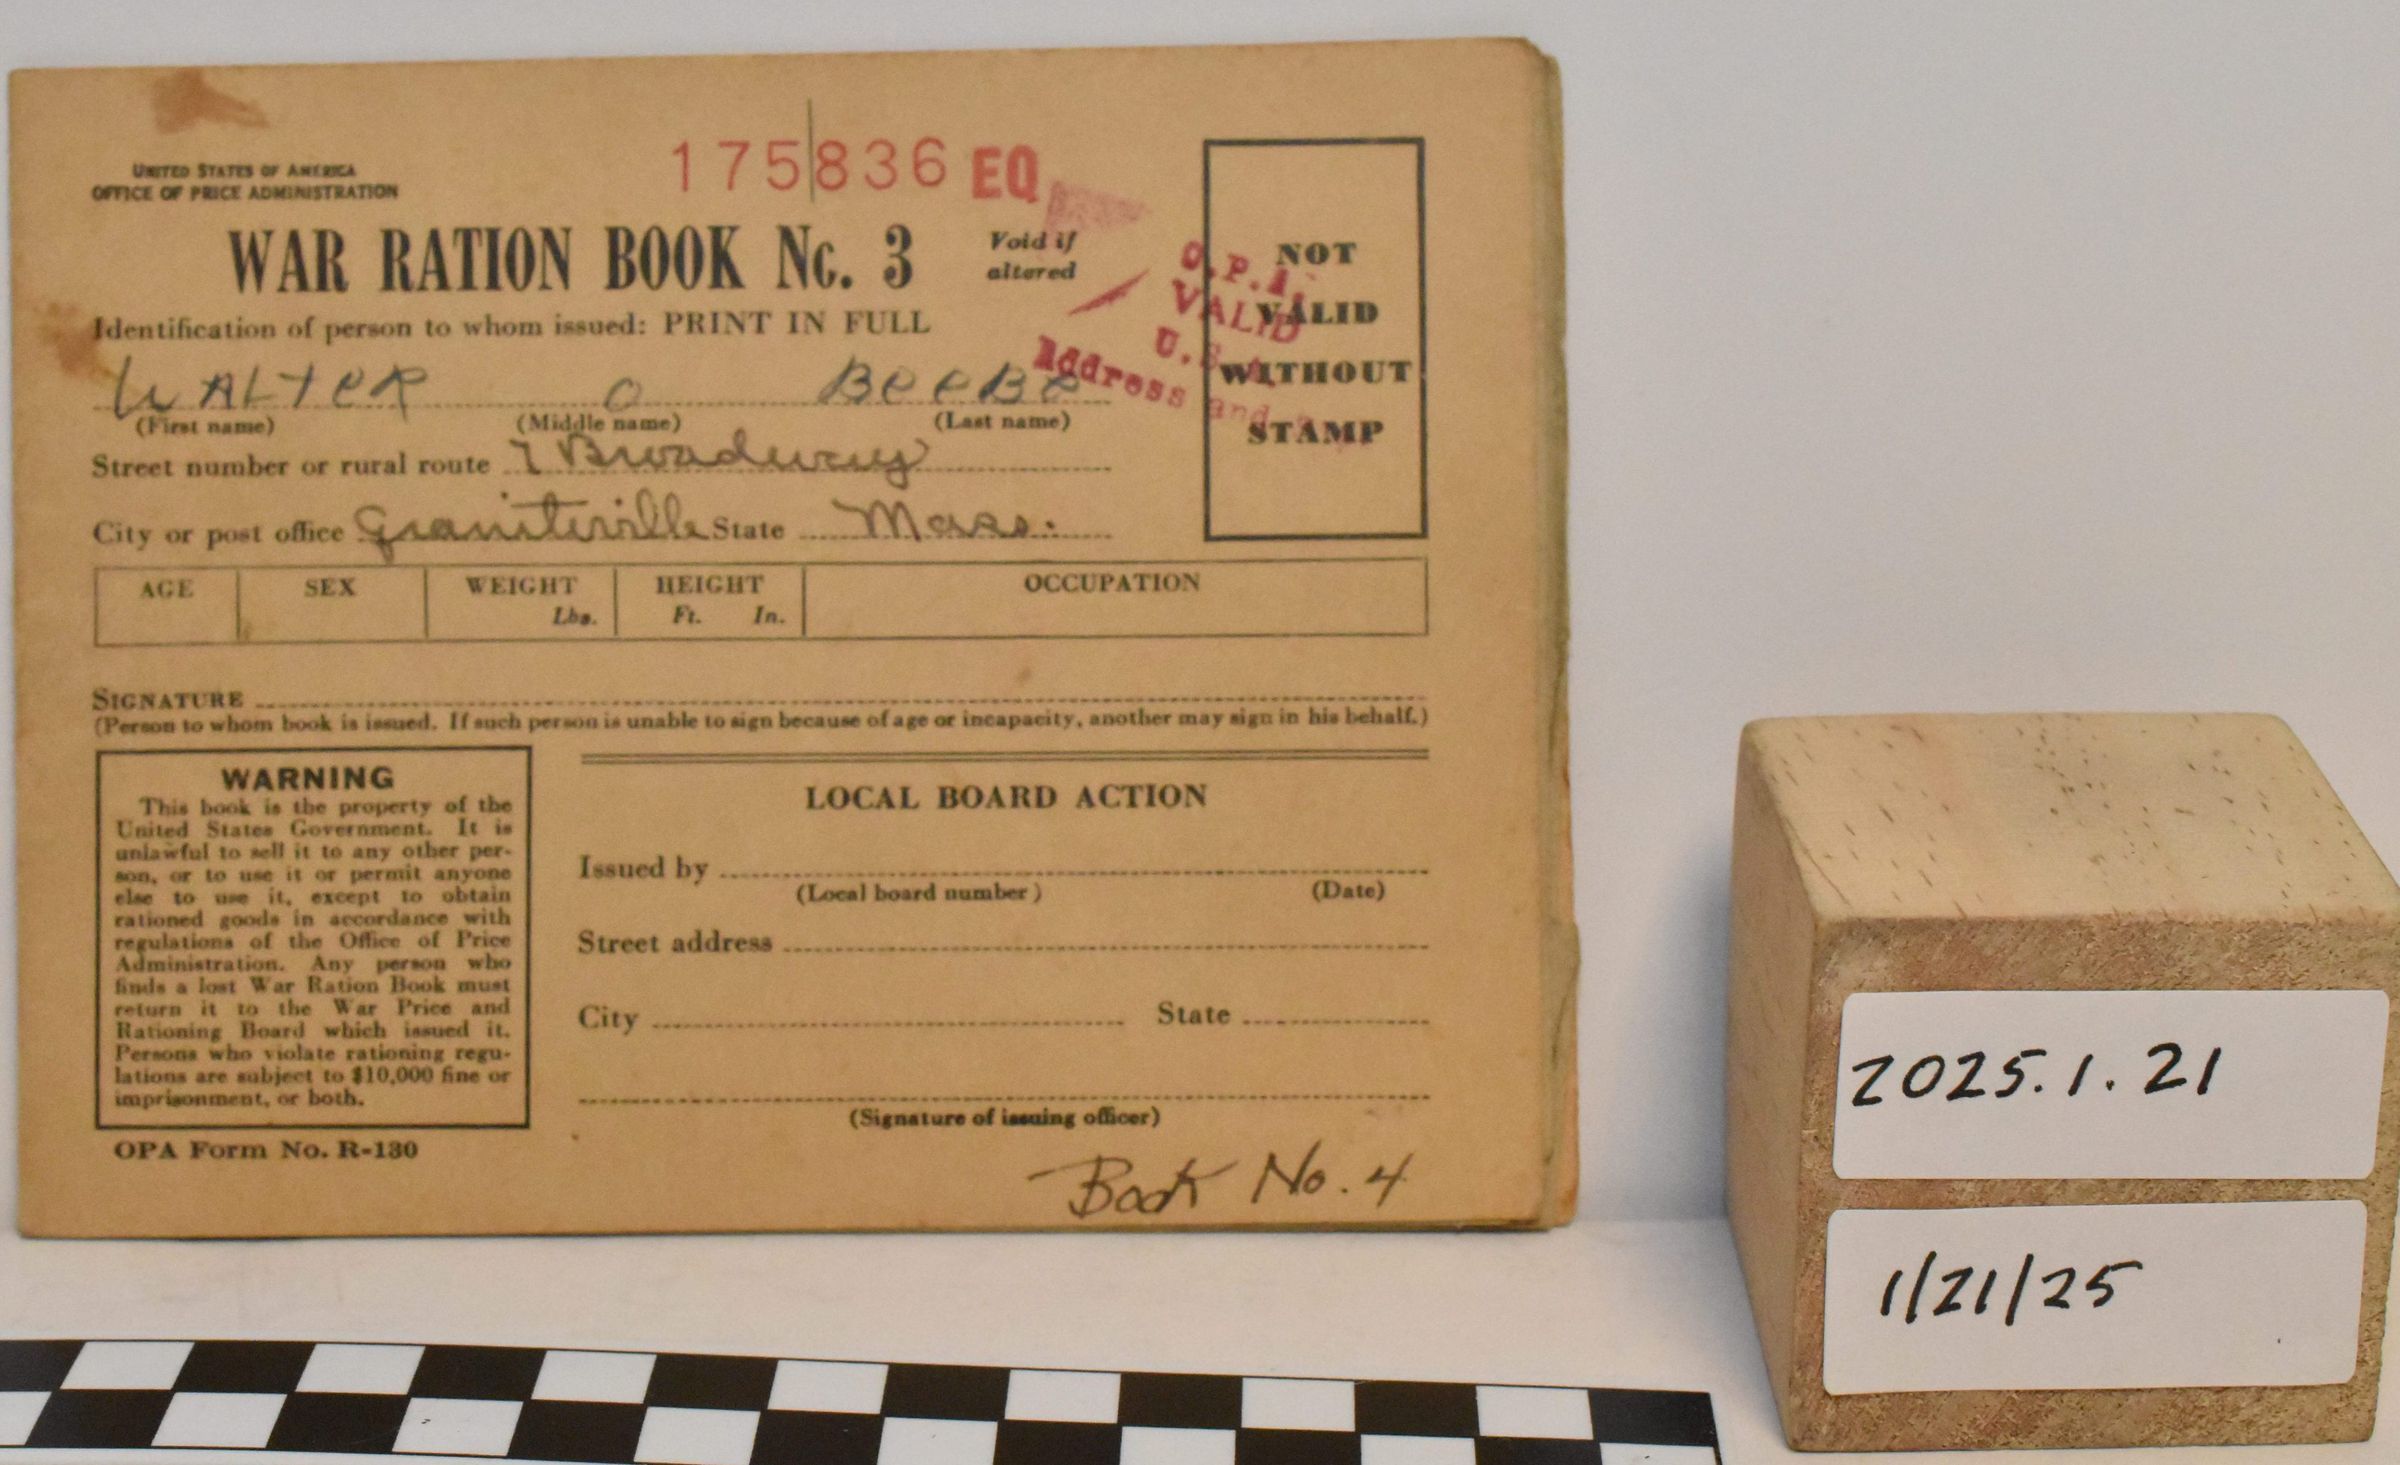 UNITED STATES OF AMERICA
OFFICE OF PRICE ADMINISTRATION
175836 EQ
WAR RATION BOOK No. 3
Void if
altered
Identification of person to whom issued: PRINT IN FULL
WALTER O BEEBE
(First name) (Middle name) (Last name)
Street number or rural route 7 Broadway
City or post office Graniteville State Mass.
O.P.A.
VALID
U.S.A.
Address and
NOT
VALID
WITHOUT
STAMP
AGE SEX WEIGHT HEIGHT OCCUPATION
Lbs. Ft. In.
SIGNATURE
(Person to whom book is issued. If such person is unable to sign because of age or incapacity, another may sign in his behalf.)
WARNING
This book is the property of the
United States Government. It is
unlawful to sell it to any other per-
son, or to use it or permit anyone
else to use it, except to obtain
rationed goods in accordance with
regulations of the Office of Price
Administration. Any person who
finds a lost War Ration Book must
return it to the War Price and
Rationing Board which issued it.
Persons who violate rationing regu-
lations are subject to $10,000 fine or
imprisonment, or both.
OPA Form No. R-130
LOCAL BOARD ACTION
Issued by
(Local board number) (Date)
Street address
City State
(Signature of issuing officer)
Book No. 4
2025.1.21
1/21/25